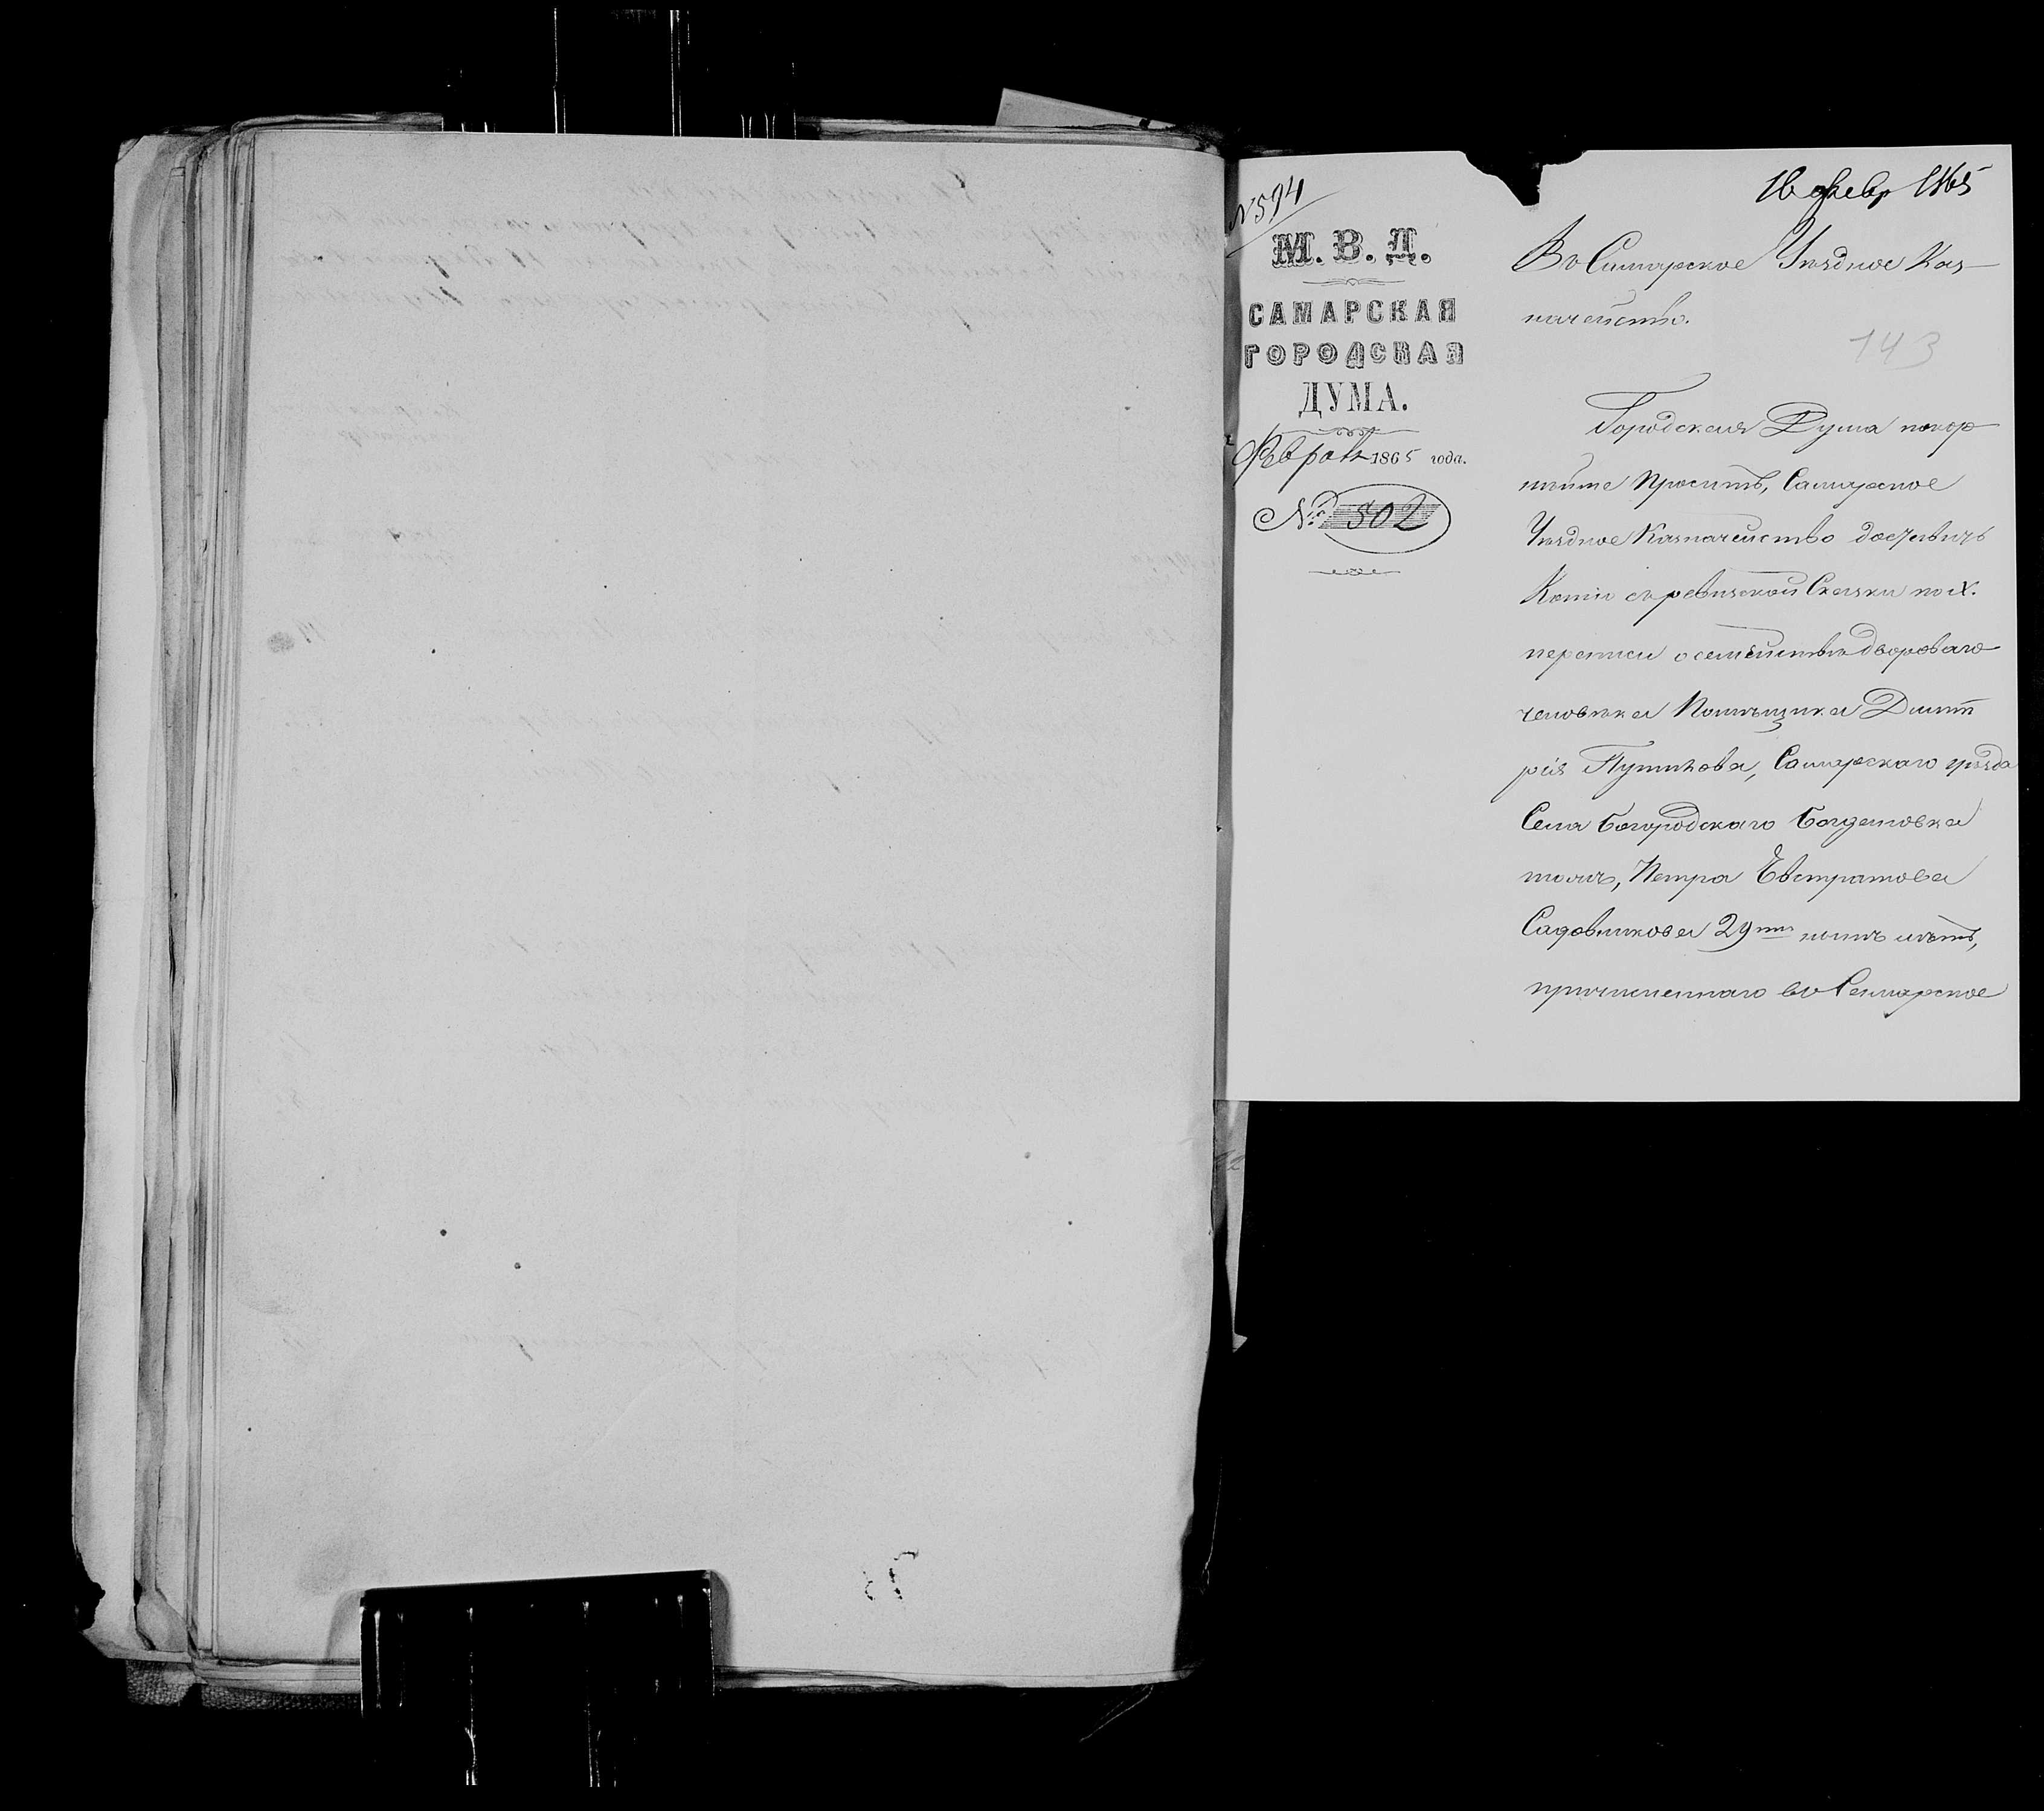 № 594
М. В. Д.
САМАРСКАЯ
ГОРОДСКАЯ
ДУМА.
Февраля 1865 года.
№ 502
16 февр 1865
Въ Самарское Уѣздное Каз-
начейство.
143
Городская Дума покор
нѣйше проситъ, Самарское
Уѣздное Казначейство доставить
Копію съ ревизской Сказки по X.
переписи о семействѣ двороваго
человѣка Помѣщика Дмит
рія Путилова, Самарскаго уѣзда
Села Богородскаго Богдановка
тожъ, Петра Евстратова
Садовникова 29ти лѣтъ,
причисленнаго въ Самарское